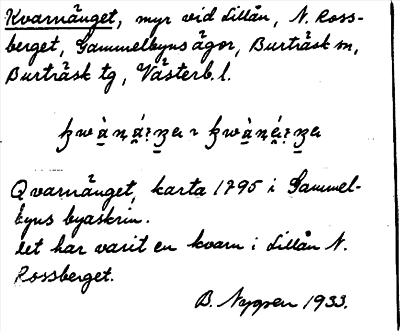 Kvarnänget, myr vid Lillån, N. Ross-
berget, Gammelbyns ägor, Burträsk sn,
Burträsk tg, Västerb. l.
Qvarnänget, karta 1795 i Gammel-
byns byaskrin.
Det har varit en kvarn i Lillån N.
Rossberget.
B. Nygren 1933.